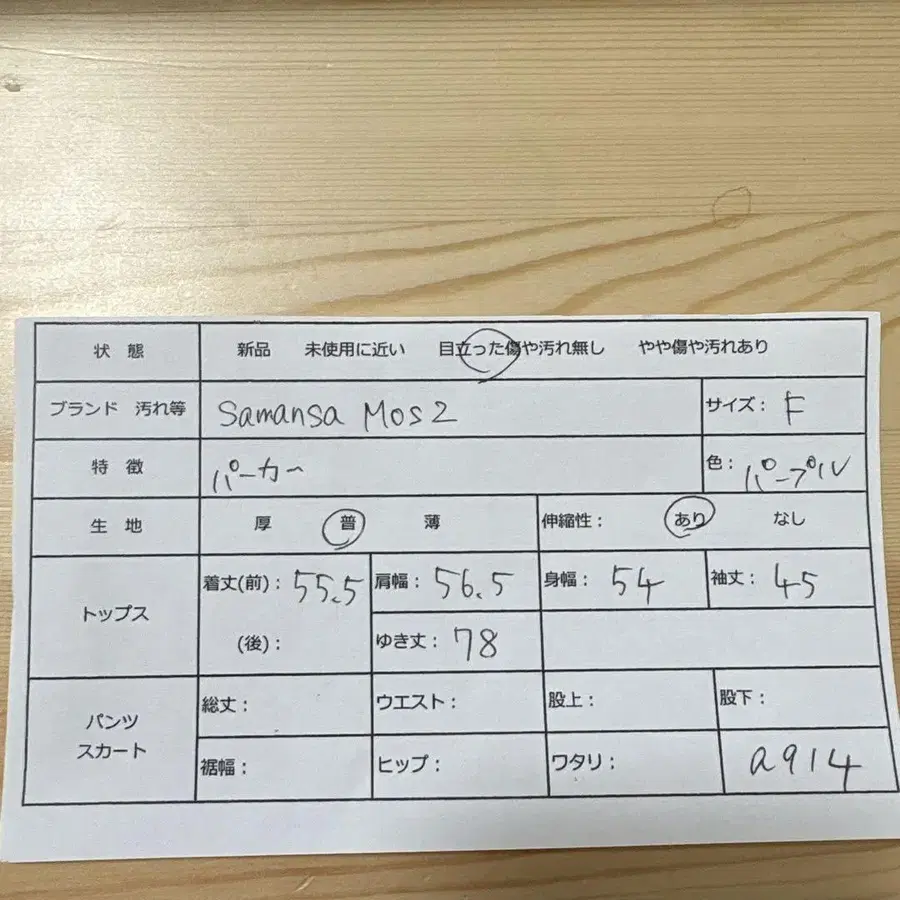 状 態 新品 未使用に近い 目立った傷や汚れ無し やや傷や汚れあり
ブランド 汚れ等 Samansa Mos2 サイズ: F
特 徴 パーカー 色: パープル
生 地 厚 普 薄 伸縮性: あり なし
トップス 着丈(前): 55.5 肩幅: 56.5 身幅: 54 袖丈: 45
(後): ゆき丈: 78
パンツ スカート 総丈: ウエスト: 股上: 股下:
裾幅: ヒップ: ワタリ: a914